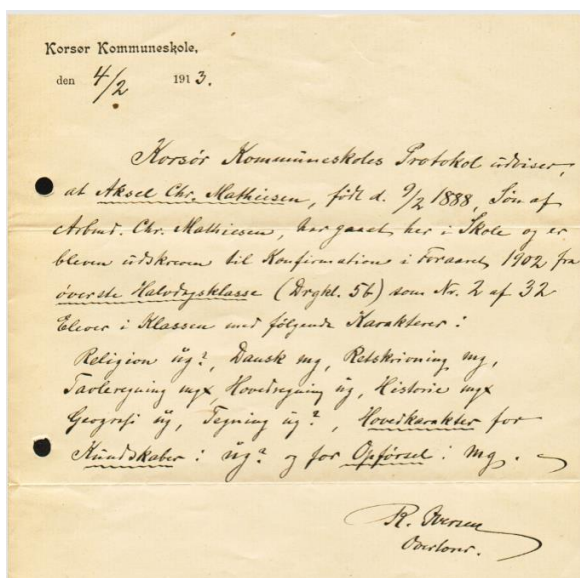 Korsør Kommuneskole,
den 4/2 1913.
Korsör Kommuneskoles Protokol udviser,
at Aksel Chr. Mathiesen, född d. 9/2 1888, Sön af
Arbmd. Chr. Mathiesen, har gaaet her i Skole og er
bleven udskreven til Konfirmation i Foraaret 1902 fra
överste Halvdagsklasse (Drgkl. 5b) som Nr. 2 af 32
Elever i Klassen med fölgende Karakterer:
Religion ug?, Dansk mg, Retskrivning mg,
Tavleregning mgx, Hovedregning ug, Historie mgx
Geografi ug, Tegning ug?, Hovedkarakter for
Kundskaber: ug? og for Opförsel: mg.
R. Iversen
Overlærer.